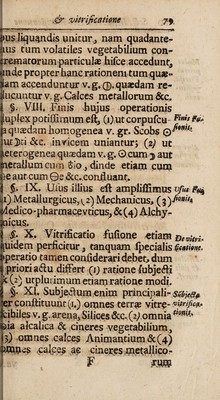 & vitrificatione 79
pus liquandis unitur, nam quadante-
nus tum volatiles vegetabilium con-
crematorum particulæ hisce accedunt,
inde propter hanc rationem tum quæ-
dam accenduntur v. g. quædam re-
ducuntur v. g. Calces metallorum &c.
§. VIII. Finis hujus operationis
duplex potissimum est, (1) ut corpuscu-
la quædam homogenea v. gr. Scobs ☉
ut ☽i &c. invicem uniantur; (2) ut
heterogenea quædam v. g. ☉ cum aut
metallum cum o, dinde etiam cum
aut cum &c. confluant.
Finis Fu-
sionis.
§. IX. Usus illius est amplissimus
(1) Metallurgicus, (2) Mechanicus, (3)
Medico-pharmacevticus, & (4) Alchy-
micus.
Usus Fu-
sionis.
§. X. Vitrificatio fusione etiam
quidem perficitur, tanquam specialis
operatio tamen considerari debet, dum
a priori actu differt (1) ratione subjecti
& (2) utplurimum etiam ratione modi.
De vitri-
ficatione.
§. XI. Subjectum enim principali-
ter constituunt (1.) omnes terræ vitre-
scibiles v. g. arena, Silices &c. (2) omnia
alcalica & cineres vegetabilium,
(3) omnes calces Animantium & (4)
omnes calces ac cineres metallico-
Subjecta
vitrifica-
tionis.
F rum